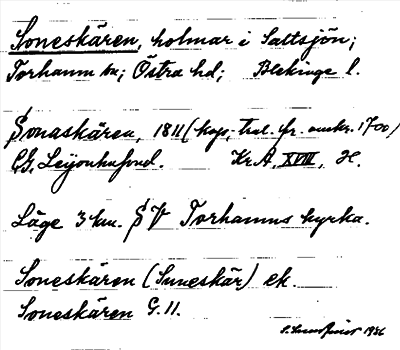 Soneskären, holmar i Saltsjön;
Torhamn sn; Östra hd; Blekinge l.
Sonaskären, 1811 (kop. tral. fr. omkr. 1700)
C.G. Leijonhufvud. Kr.A. XVIII, H.
Läge 3 km. SV Torhamns kyrka.
Soneskären (Suneskär) ek.
Soneskären G.11.
1936